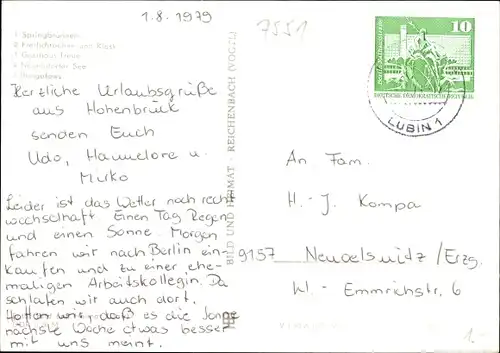 1.8.1979
7551
1 Springbrunnen
Neuendorfer See
Herzliche Urlaubsgrüße
aus Hohenbrück
senden Euch
Udo, Hannelore u.
Mirko
Leider ist das Wetter noch recht
wechselhaft. Einen Tag Regen
und einen Sonne. Morgen
fahren wir nach Berlin ein-
kaufen und zu einer ehe-
maligen Arbeitskollegin. Da
schlafen wir auch dort.
Hoffen wir, daß es die
nächste Woche etwas besser
mit uns meint.
BILD UND HEIMAT · REICHENBACH (VOGTL)
10
DEUTSCHE DEMOKRATISCHE REPUBLIK
LUBIN 1
An Fam.
H.-J. Kompa
9157 Neuoelsnitz/Erzg.
W.-Emmrichstr. 6
1.-